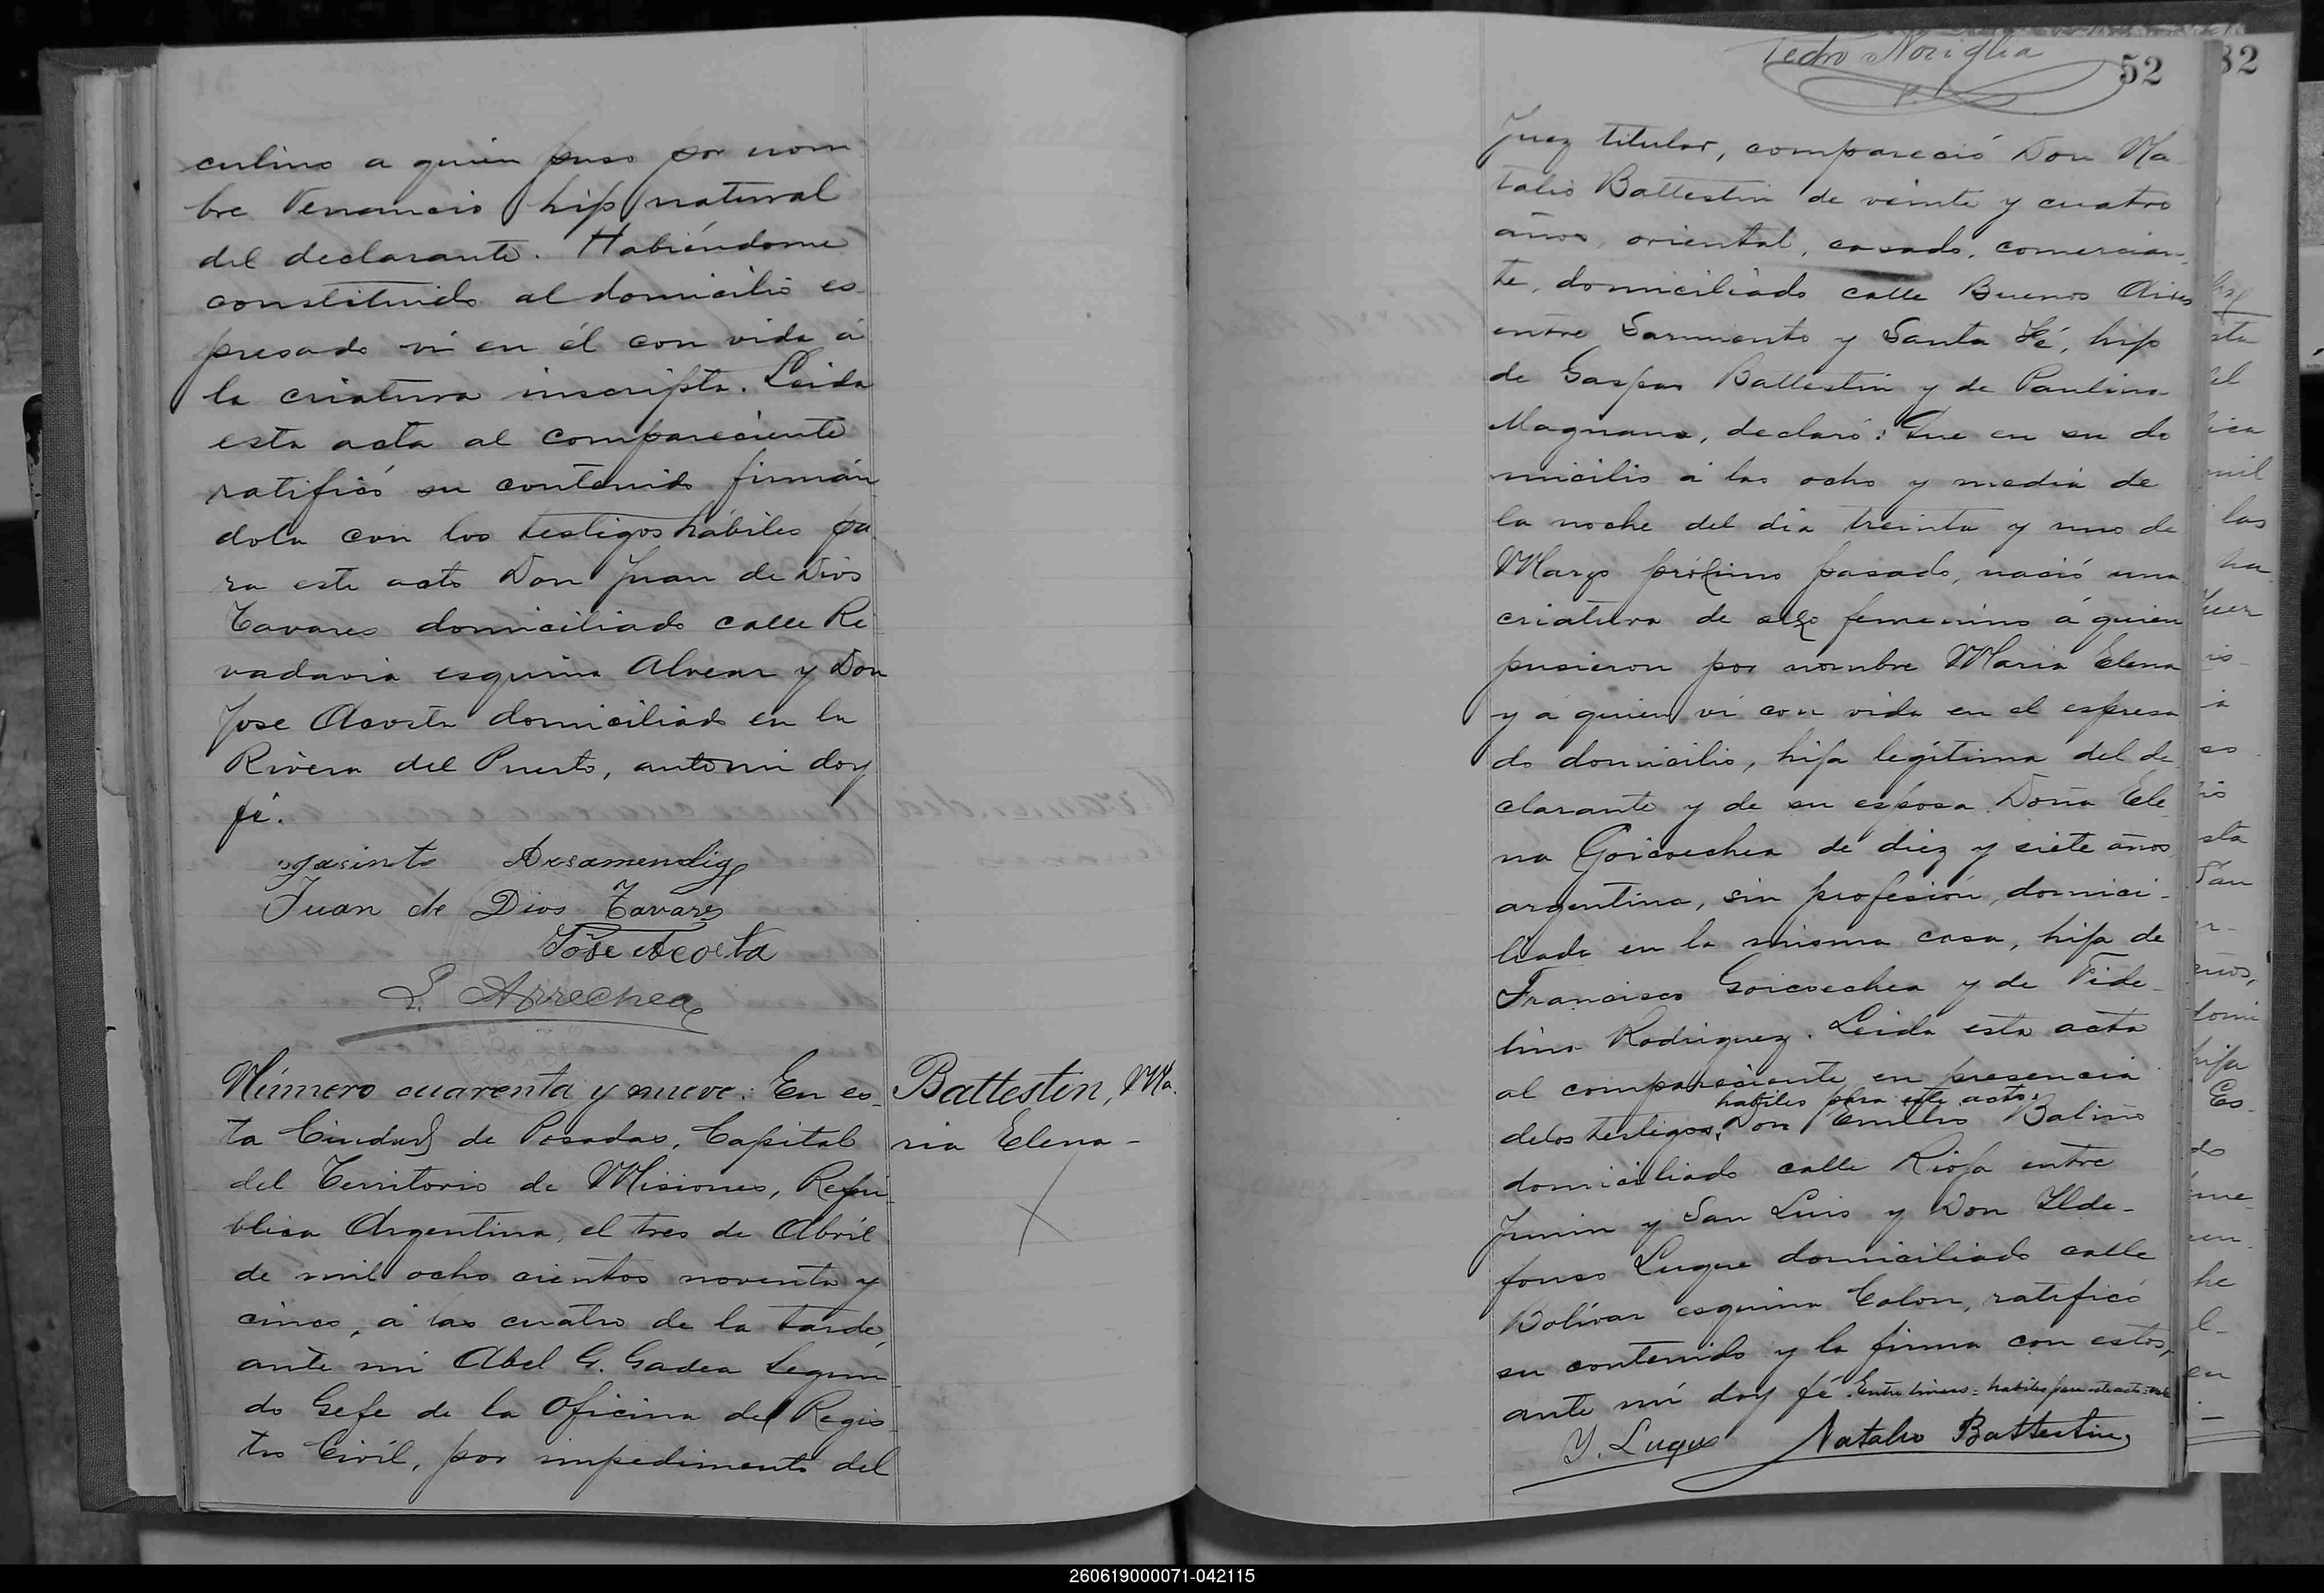 culino a quien puso por nom
bre Venancio hijo natural
del declarante. Habiéndome
constituido al domicilio es
presado vi en él con vida á
la criatura inscripta. Leida
esta acta al compareciente
ratificó su contenido firmán
dola con los testigos hábiles pa
ra este acto Don Juan de Dios
Tavares domiciliado calle Ri
vadavia esquina Alvear y Don
Jose Acosta domiciliado en la
Rivera del Puerto, ante mi doy
fé.
Jasinto Arsamendia
Juan de Dios Tavares
Jose Acosta
L. Arrechea
Número cuarenta y nueve. En es-
ta Ciudad de Posadas, Capital
del Territorio de Misiones, Repú-
blica Argentina, el tres de Abril
de mil ocho cientos noventa y
cinco, á las cuatro de la tarde,
ante mi Abel G. Gadea Segun-
do Gefe de la Oficina del Regis-
tro Civil, por impedimento del
Battestin, Ma-
ria Elena -
Pedro Noriglia
52
Juez titular, compareció Don Na
talio Battestin de veinte y cuatro
años, oriental, casado, comercian-
te, domiciliado calle Buenos Aires
entre Sarmiento y Santa Fé, hijo
de Gaspar Battestin y de Paulina
Magnano, declaró: Que en su do
micilio á las ocho y media de
la noche del dia treinta y uno de
Marzo próximo pasado, nació una
criatura de sexo femenino á quien
pusieron por nombre Maria Elena
y á quien vi con vida en el espresa
do domicilio, hija legítima del de
clarante y de su esposa Doña Ele
na Goicoechea de diez y siete años
argentina, sin profesión, domici-
liada en la misma casa, hija de
Francisco Goicoechea y de Fide-
lina Rodriguez. Leida esta acta
al compareciente en presencia
habiles para este acto
de los testigos, Don Emilio Baliño
domiciliado calle Rioja entre
Junin y San Luis y Don Ilde-
fonso Luque domiciliado calle
Bolívar esquina Colon, ratificó
su contenido y la firma con estos,
ante mí doy fé. Entre lineas = habiles para este acto = vale
Y. Luque Natalio Battestin
82
260619000071-042115